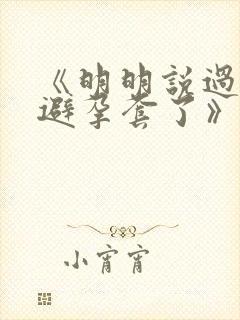 《明明說過
避孕套了》
小宵宵